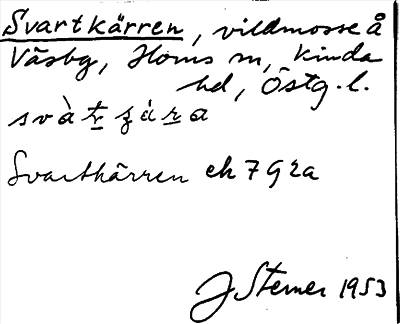 Svartkärren, vildmosse å
Väsby, Horns sn, Kinda
hd, Östg. l.
Svartkärren ek 7 G 2a
J Sterner 1953